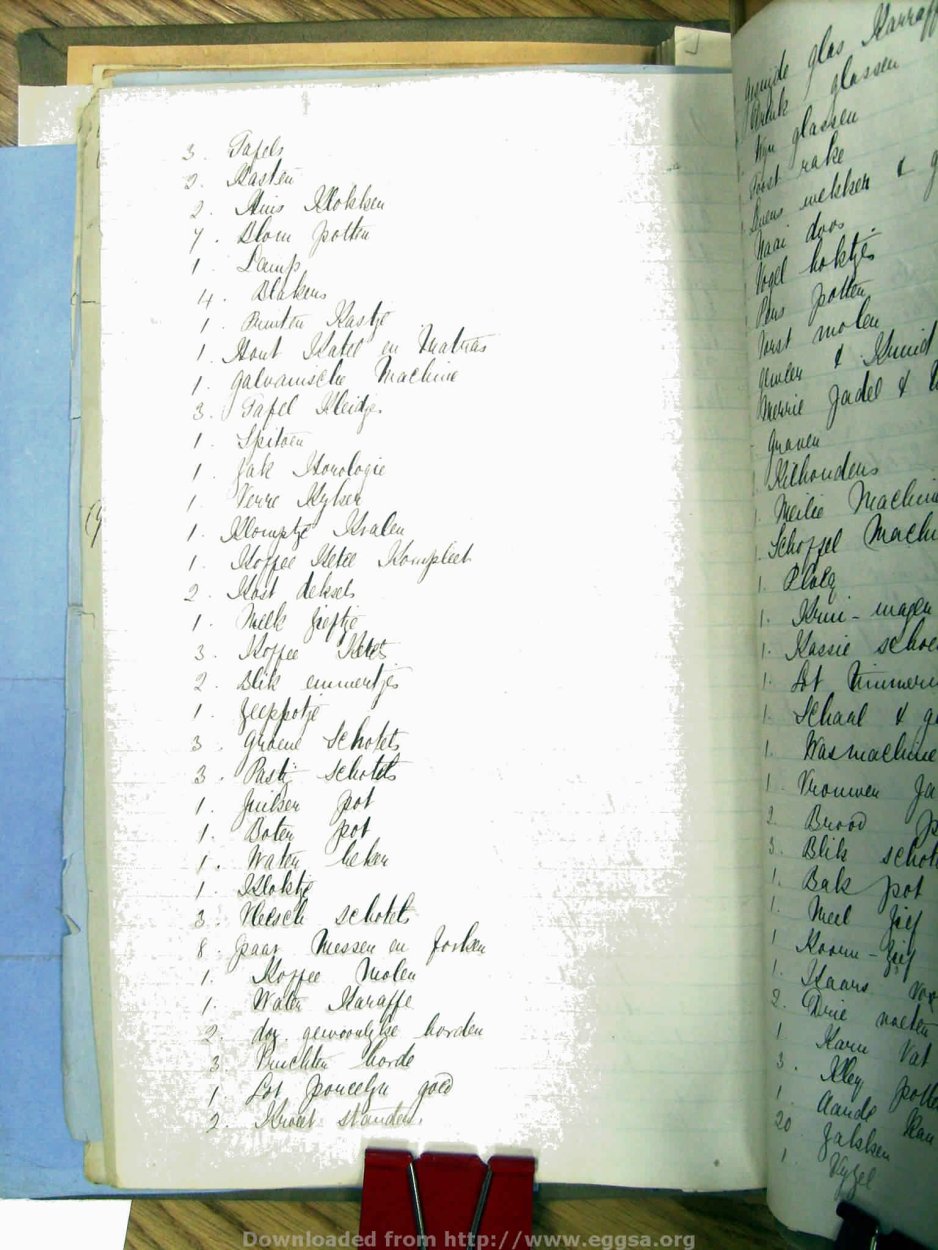 3. Tafels
2. Kasten
2. Huis Klokken
7. Blom potten
1. Lamp
4. Blakers
1. Kastje
1. Hout Katel en Matras
1. galvanische Machine
3. Tafel Kleidjes
1. Spitoen
1. Zak Horologie
1. Verre Kyker
1. Klompje Kralen
1. Koffee Ketel Kompleet
2. Kost deksels
1. Melk Zieftje
3. Koffee Ketels
2. Blik emmertjes
1. Zeeppotje
3. groene Schotels
3. Pastij schotels
1. Suiker pot
1. Boter pot
1. Water beker
1. Klokje
3. Vleesch schotels
8. paar Messen en forken
1. Koffee Molen
1. Water Karaffe
2. doz. gewoonlyke borden
3. Vruchten borde
1. Lot Porcelyn goed
2. standers
glas Karraff
glassen
Wyn glassen
rake
wekker &
Naai doos
Vogel hokjes
potten
Worst molen
&
Merrie Zadel &
graven
Kilhouders
1. Meilie Machine
1. Schoffel Machi
1. Ploeg
1. Krui-wagen
1. Kassie schoe
1. Lot Timmerm
1. Schaal & ge
1. Wasmachine
1. Vrouwen Za
2. Brood p
3. Blik schot
1. Bak pot
1. Meel Zief
1. Koorn-Zief
1. Kaars vor
2. Drie voeten
1. Karn Vat
3. Kley potte
1. Aarde Kan
20 Zakken
1. Vyzel
Downloaded from http://www.eggsa.org